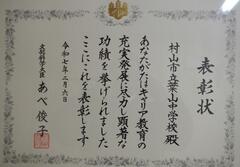 表彰状
村山市立葉山中学校殿
あなたがたはキャリア教育の
充実発展に尽力し顕著な
功績を挙げられました
ここにこれを表彰します
令和七年二月六日
文部科学大臣 あべ俊子